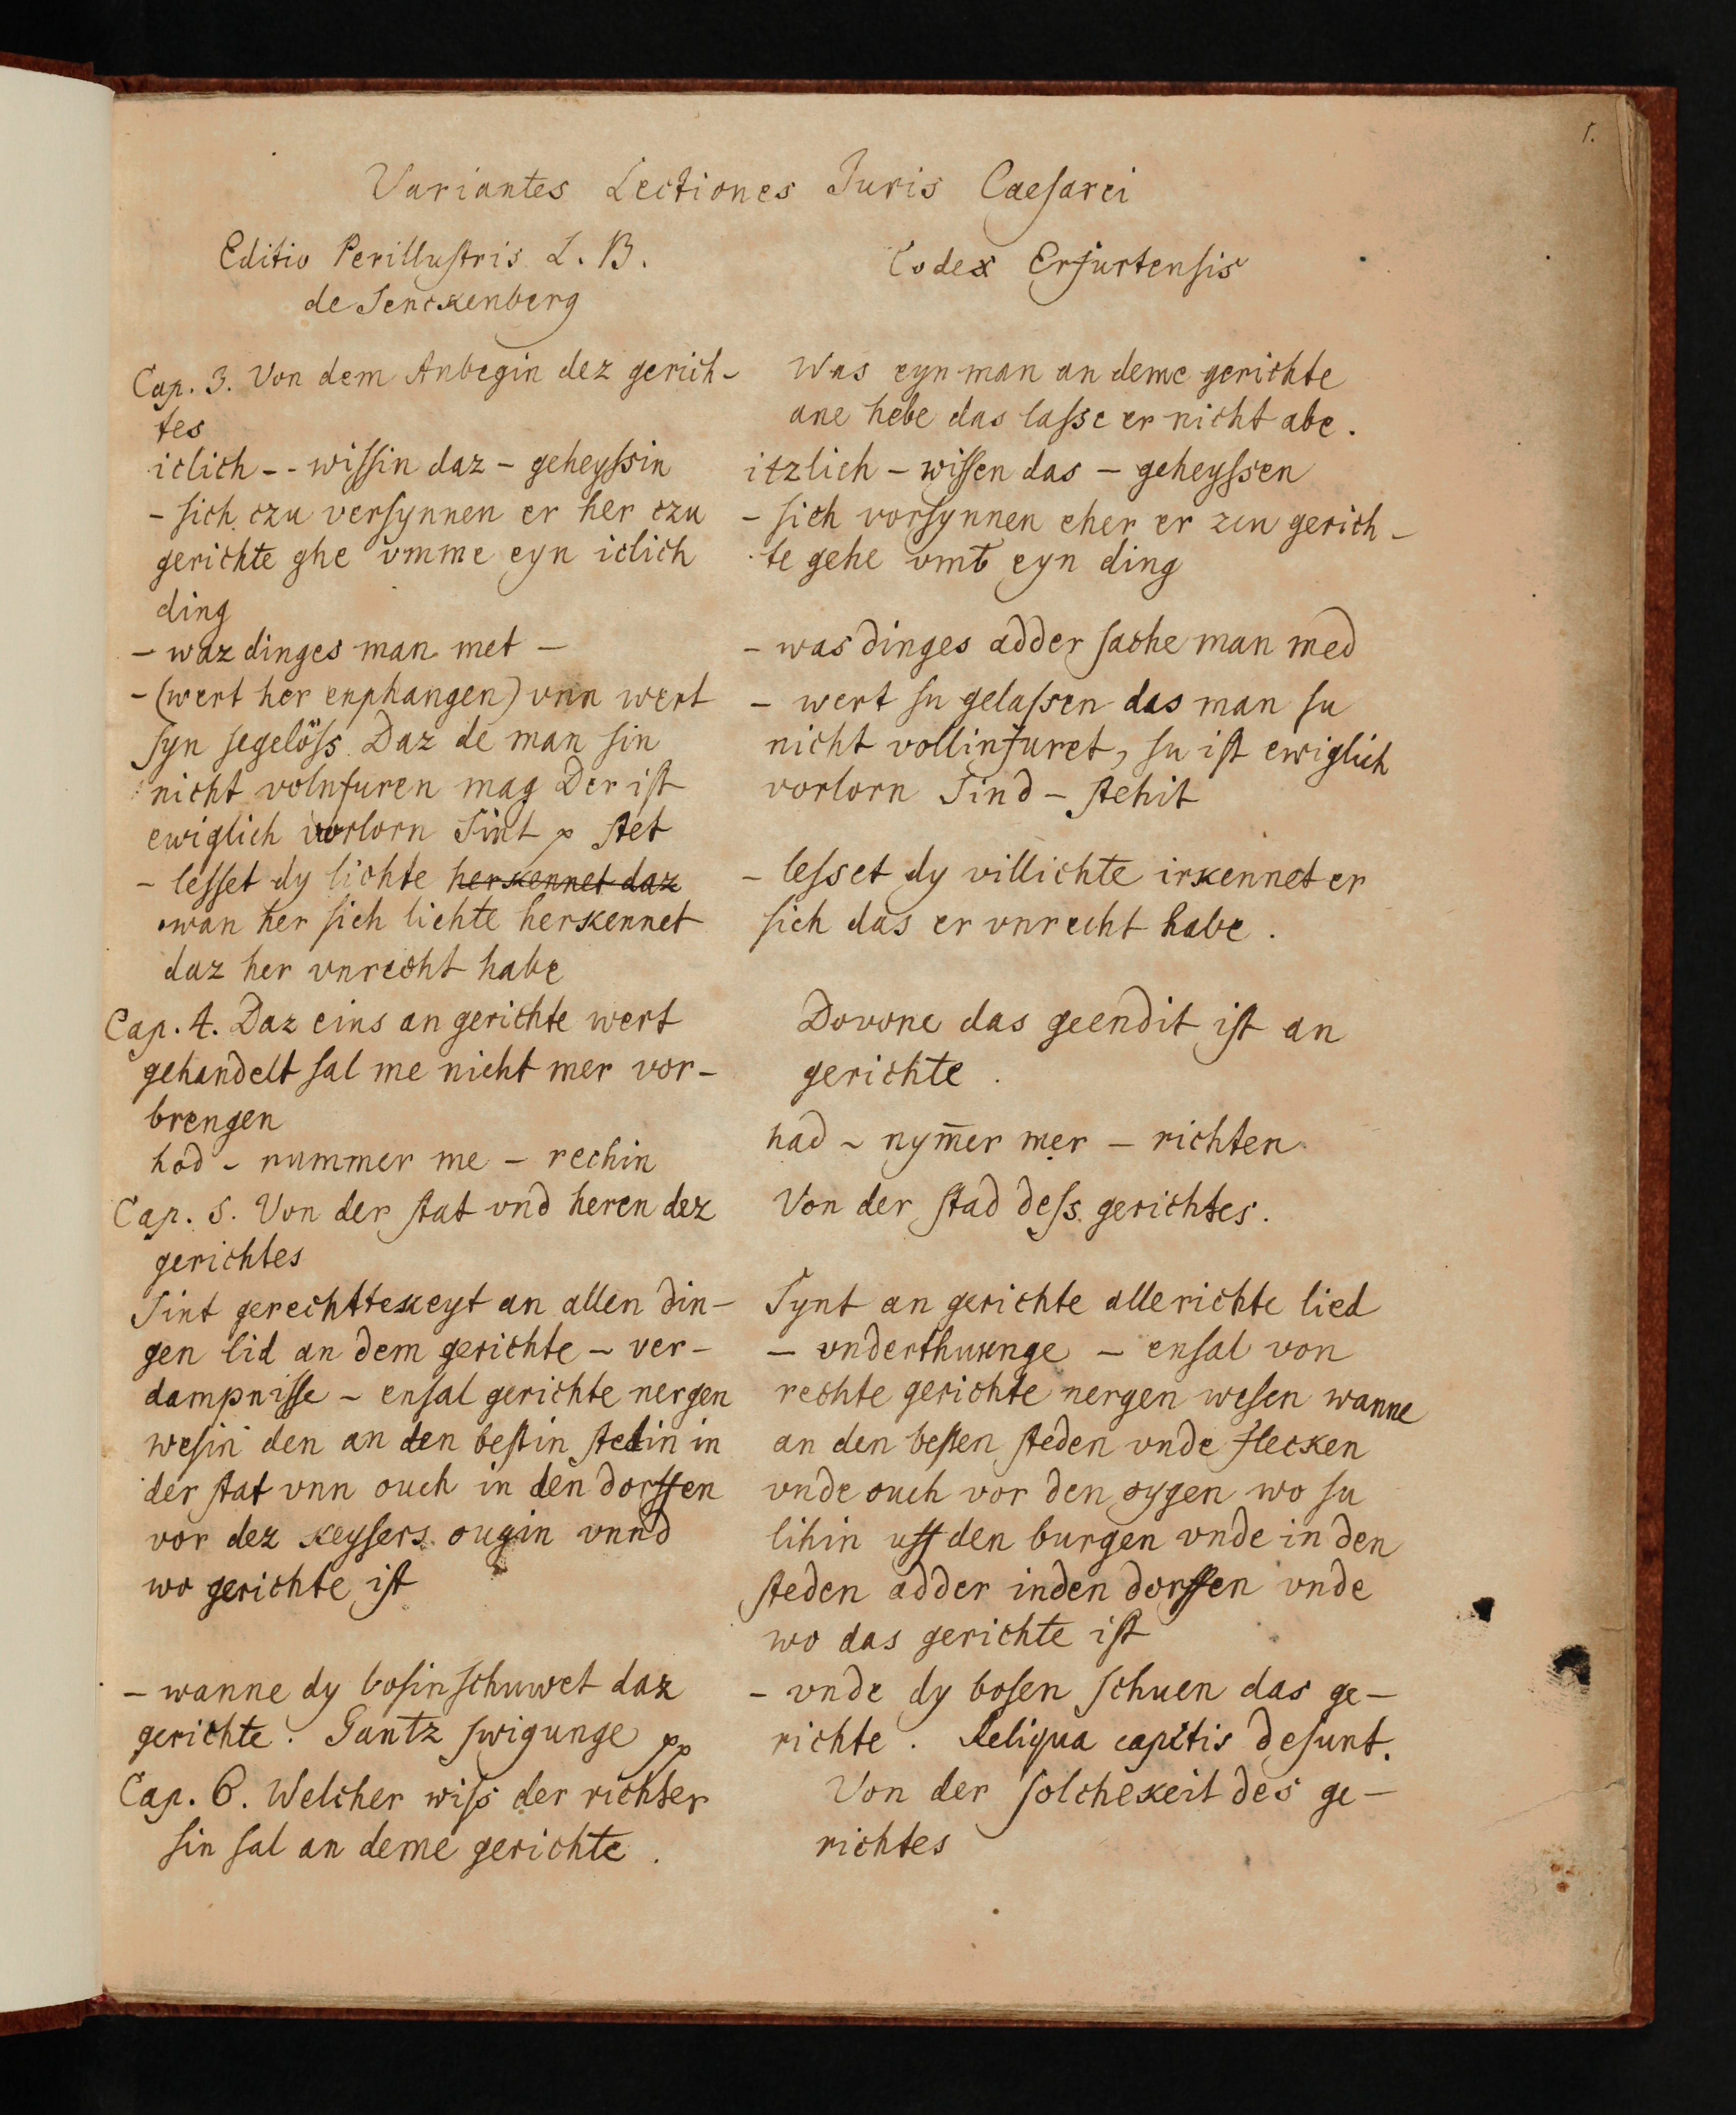 1.
Variantes Lectiones Juris Caeſarei
Editio Perilluſtris L. B.
de Senckenberg
Cap. 3. Von dem Anbegin dez gerich-
tes
iclich - - wiſſin daz - geheyſsin
- ſich czu verſynnen er her czu
gerichte ghe vmme eyn iclich
ding
- waz dinges man met -
- (wert her enphangen) vnn wert
ſyn ſegelöſs Daz de man ſin
nicht volnfuren mag Der iſt
ewiglich vorlorn Sint p ſtet
- leſſet dy lichte herkennet daz
wan her ſich lichte herkennet
daz her vnrecht habe
Cap. 4. Daz eins an gerichte wert
gehandelt ſal me nicht mer vor-
brengen
hod - nummer me - rechin
Cap. 5. Von der ſtat vnd heren dez
gerichtes
Sint gerechttekeyt an allen din-
gen lid an dem gerichte - ver-
dampniſſe - enſal gerichte nergen
weſin den an den beſtin ſtedin in
der ſtat vnn ouch in den dorffen
vor dez keyſers ougin vnnd
wo gerichte iſt
- wanne dy boſin ſchuwet daz
gerichte. Gantz ſwigunge pp
Cap. 6. Welcher wiſs der richter
ſin ſal an deme gerichte.
Codex Erfurtenſis
Was eyn man an deme gerichte
ane hebe das laſse er nicht abe.
itzlich - wiſſen das - geheyſsen
- ſich vorſynnen eher er zcu gerich-
te gehe vmb eyn ding
- was dinges adder ſache man med
- wert ſu gelaſsen das man ſu
nicht vollinfuret, ſu iſt ewiglich
vorlorn Sind - ſtehit
- leſset dy villichte irkennet er
ſich das er vnrecht habe.
Dovone das geendit iſt an
gerichte.
had - nym̄er mer - richten
Von der ſtad deſs gerichtes.
Synt an gerichte alle richte lied
- vnderthunge - enſal von
rechte gerichte nergen weſen wanne
an den beſten ſteden vnde flecken
vnde ouch vor den oygen wo ſu
lihin uff den burgen vnde in den
ſteden adder inden dorffen vnde
wo das gerichte iſt
- vnde dy boſen ſchuen das ge-
richte. Reliqua capitis deſunt.
Von der ſolchekeit des ge-
richtes